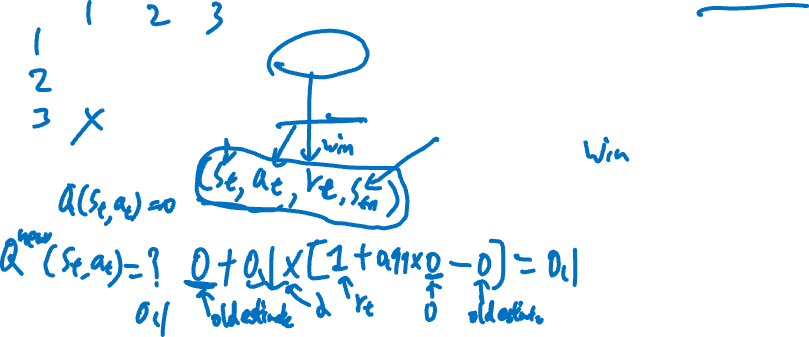 1 2 3
1
2
3 X
win
win
(St, at, rt, St+1)
Q(St, at)=0
Q^new (St, at)=? 0+0,1x[1+0,99x0-0]=0,1
0,1 old estimate α rt 0 old estimate